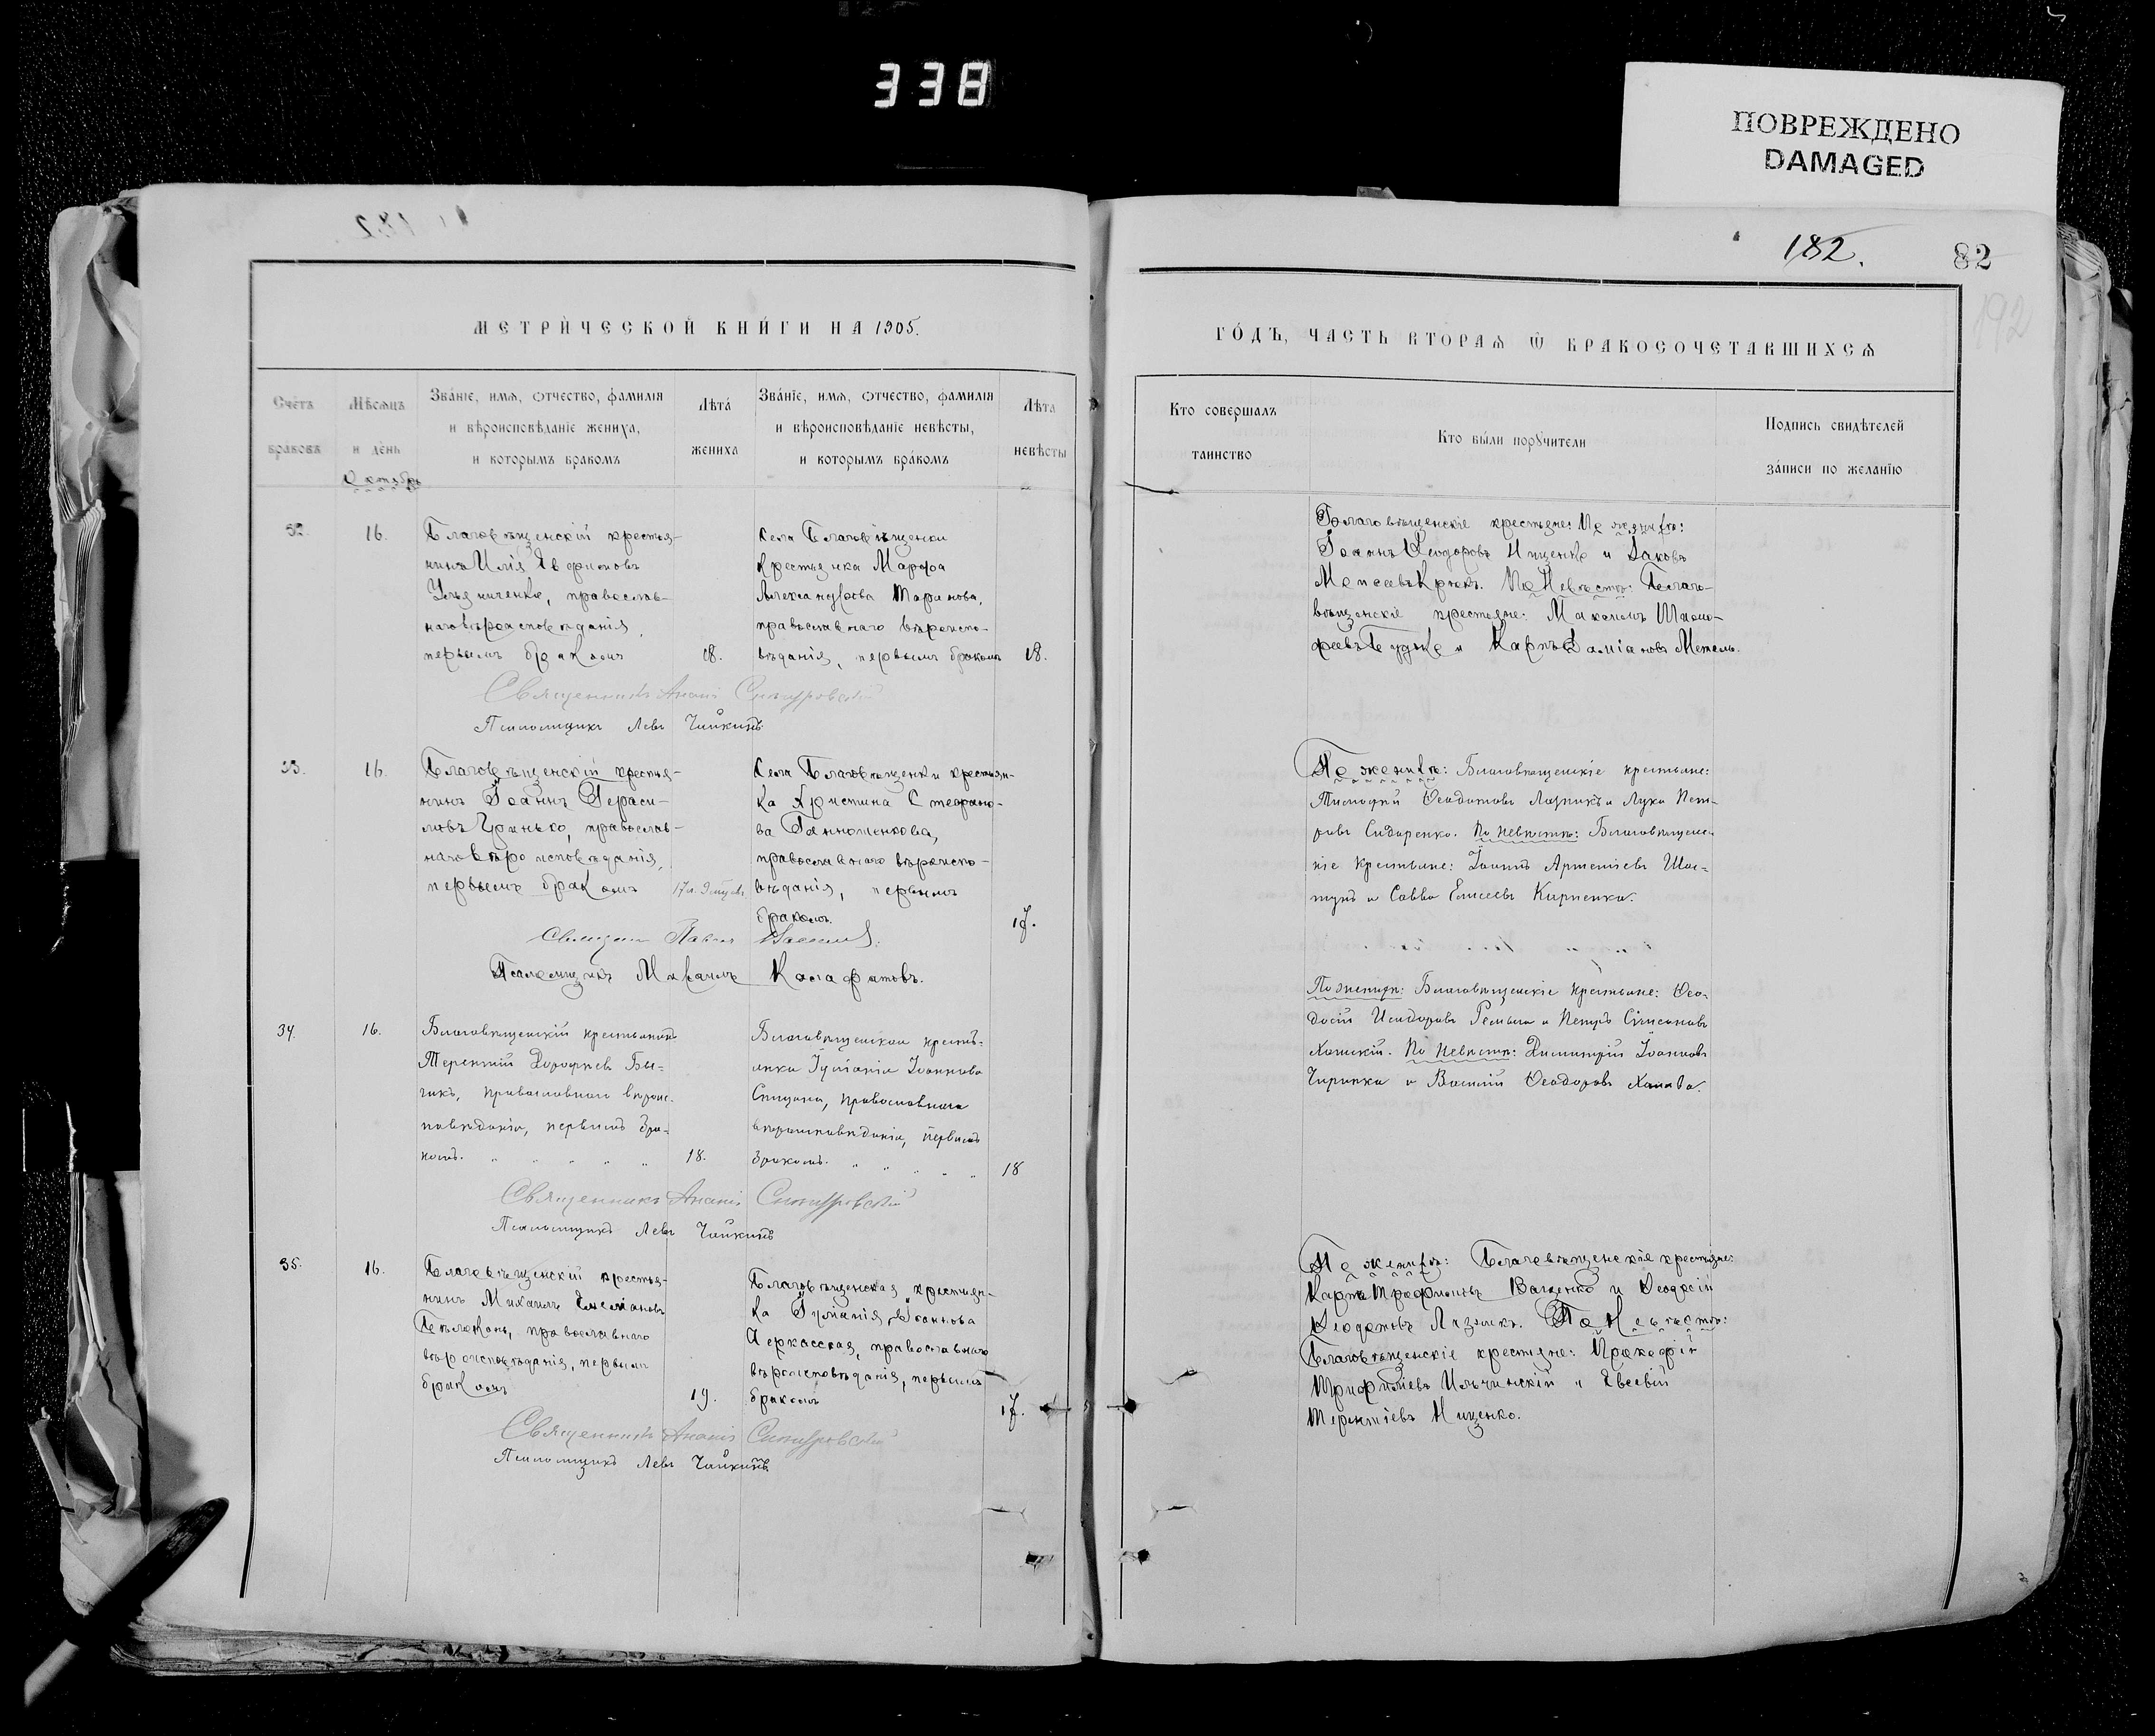 338
ПОВРЕЖДЕНО
DAMAGED
182.
82
192
МЕТРИЧЕСКОЙ КНИГИ НА 1905.
Счетъ браковъ
Мѣсяцъ и день
Званіе, имя, отчество, фамилія и вѣроисповѣданіе жениха, и которымъ бракомъ
Лѣта жениха
Званіе, имя, отчество, фамилія и вѣроисповѣданіе невѣсты, и которымъ бракомъ
Лѣта невѣсты
Октябрь
32.
16.
Благовѣщенскій крестья-
нинъ Илія Евфимовъ
православ-
наго вѣроисповѣданія,
первымъ бракомъ
18.
Села Благовѣщенки
крестьянка Марфа
Александрова Таранова,
православнаго вѣроиспо-
вѣданія, первымъ бракомъ
18.
Священникъ Ананій
Псаломщикъ Левъ Чайкинъ
33.
16.
Благовѣщенскій крестья-
нинъ Іоаннъ Гераси-
мовъ Гринько, православ-
наго вѣроисповѣданія,
первымъ бракомъ
17 л. 9 мѣсц.
Села Благовѣщенки крестьян-
ка Христина Стефано-
ва
православнаго вѣроиспо-
вѣданія, первымъ
бракомъ.
17.
Священ. Павелъ
Псаломщикъ Михаилъ Калафатовъ.
34.
16.
Благовѣщенскій крестьянинъ
Терентій Дорофеевъ Бы-
чикъ, православнаго вѣроис-
повѣданія, первымъ бра-
комъ. " " " " "
18.
Благовѣщенская кресть-
янка Іуліанія Іоаннова
православнаго
вѣроисповѣданія, первымъ
бракомъ. " " " " "
18
Священникъ Ананій
Псаломщикъ Левъ Чайкинъ
35.
16.
Благовѣщенскій крестья-
нинъ Михаилъ Емеліановъ
Бѣлоконь, православнаго
вѣроисповѣданія, первымъ
бракомъ
19.
Благовѣщенская крестьян-
ка Іуліанія Іоаннова
Черкасская, православнаго
вѣроисповѣданія, первымъ
бракомъ
17.
Священникъ Ананій
Псаломщикъ Левъ Чайкинъ
ГОДЪ, ЧАСТЬ ВТОРАЯ Ѿ БРАКОСОЧЕТАВШИХСЯ
Кто совершалъ таинство
Кто были поручители
Подпись свидѣтелей записи по желанію
Благовѣщенскіе крестьяне: По женихѣ:
Іоаннъ Ѳеодоровъ Ищенко и Іаковъ
Моисеевъ Крюкъ. По Невѣстѣ: Благо-
вѣщенскіе крестьяне: Максимъ Тимо-
феевъ Гудко и Карпъ Даміановъ Метель.
По женихѣ: Благовѣщенскіе крестьяне:
Тимофей Ѳеодотовъ Лазикъ и Лука Пет-
ровъ Сидоренко. По невѣстѣ: Благовѣщенс-
кіе крестьяне: Іоаннъ Артеміевъ
и Савва Елисеевъ Кириенко.
По женихѣ: Благовѣщенскіе крестьяне: Ѳео-
досій Исидоровъ и Петръ
По невѣстѣ: Димитрій Іоанновъ
Чирипка и Василій Ѳеодоровъ
По женихѣ: Благовѣщенскіе крестьяне:
Карпъ Трофимовъ Ващенко и Ѳеодосій
Ѳеодотовъ Лазикъ. По Невѣстѣ:
Благовѣщенскіе крестьяне: Прокофій
Трифиліевъ Ильчинскій и Евсевій
Терентіевъ Ищенко.